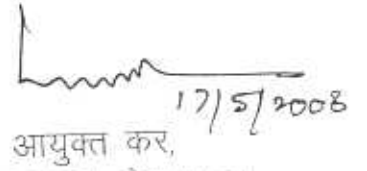 17/5/2008
आयुक्त कर,